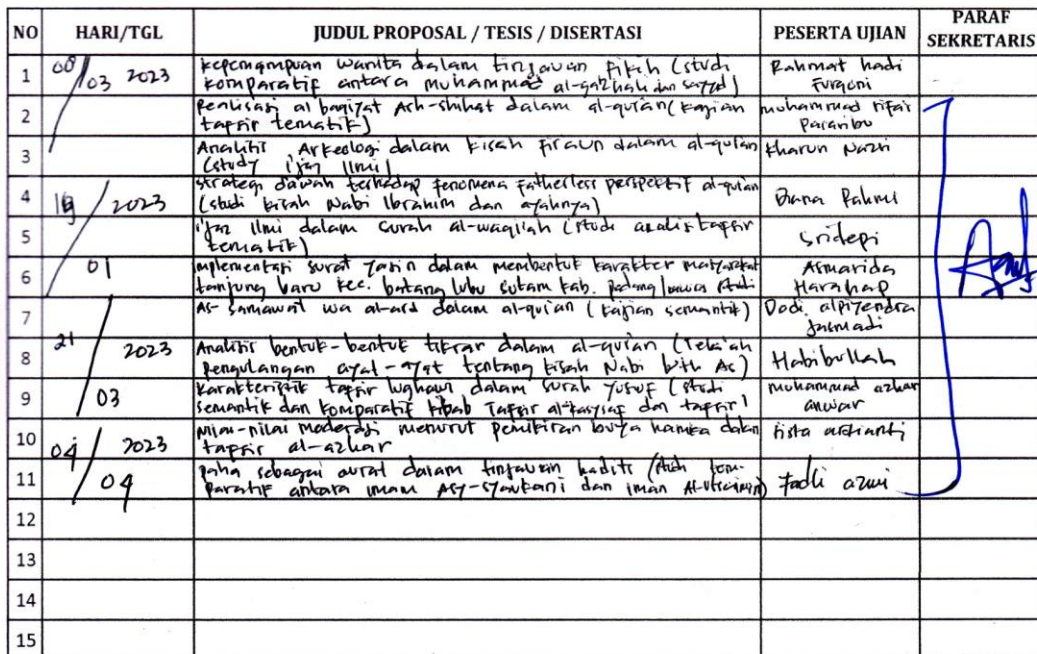 NO HARI/TGL JUDUL PROPOSAL / TESIS / DISERTASI PESERTA UJIAN PARAF SEKRETARIS
1 08/03 2023 kepemampuan wanita dalam tinjauan fikih (studi Rahmat hadi
komparatif antara muhammad al-gazhali dan sayyd) Furqoni
2 Realisasi al baqiyat Ash-shihat dalam al-qur'an (kajian muhammad rifai
tapsir tematik) Pasaribu
3 Analisis Arkeologi dalam kisah firaun dalam al-qur'an Kharun Nazri
(study i'jaz Ilmi)
4 19/ 2023 strategi da'wah terhadap fenomena fatherless perspektif al-qur'an Diana Rahmi
(studi kisah Nabi Ibrahim dan ayahnya)
5 i'jaz Ilmi dalam surah al-waqi'ah (studi analis tapsir Sridepi
tematik)
6 01 implementasi surat yasin dalam membentuk karakter masyarakat Asmarida
tanjung baru kec. batang lubu sutam kab. padang lawas studi Harahap
7 As-samawat wa al-ard dalam al-qur'an (kajian semantik) Dodi alpiyendra
jasmadi
8 21/ 2023 Analisis bentuk-bentuk tikrar dalam al-qur'an (tela'ah Habibullah
pengulangan ayat-ayat tentang kisah Nabi luth As)
9 03 karakteristik tapsir lughawi dalam surah yusuf (studi muhammad azhar
semantik dan komparatif kitab Tapsir al-kasysyaf dan tapsir) anwar
10 04/ 2023 nilai-nilai moderasi menurut pemikiran buya hamka dalam
tapsir al-azhar
11 04 paha sebagai aurat dalam tinjauan hadits (studi kom- Fadli azmi
paratif antara imam Asy-syaukani dan imam Al-utsaimin)
12
13
14
15